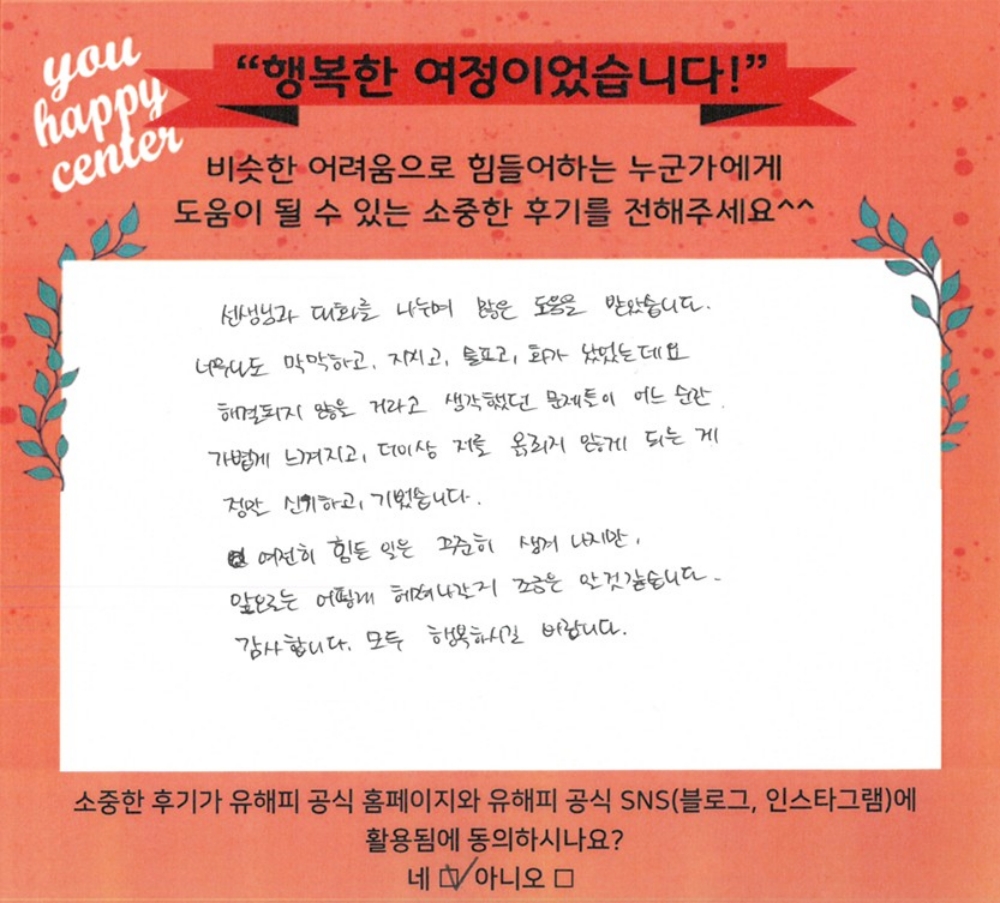 you
happy
center
“행복한 여정이었습니다!”
비슷한 어려움으로 힘들어하는 누군가에게
도움이 될 수 있는 소중한 후기를 전해주세요^^
선생님과 대화를 나누며 많은 도움을 받았습니다.
너무나도 막막하고, 지치고, 슬프고, 화가 났었는데요
해결되지 않을 거라고 생각했던 문제들이 어느 순간
가볍게 느껴지고, 더이상 저를 옭리지 않게 되는 게
정말 신기하고, 기뻤습니다.
여전히 힘든 일은 꾸준히 생겨 나지만,
앞으로는 어떻게 헤쳐나갈지 조금은 알 것 같습니다.
감사합니다. 모두 행복하시길 바랍니다.
소중한 후기가 유해피 공식 홈페이지와 유해피 공식 SNS(블로그, 인스타그램)에
활용됨에 동의하시나요?
네 ☑ 아니오 □